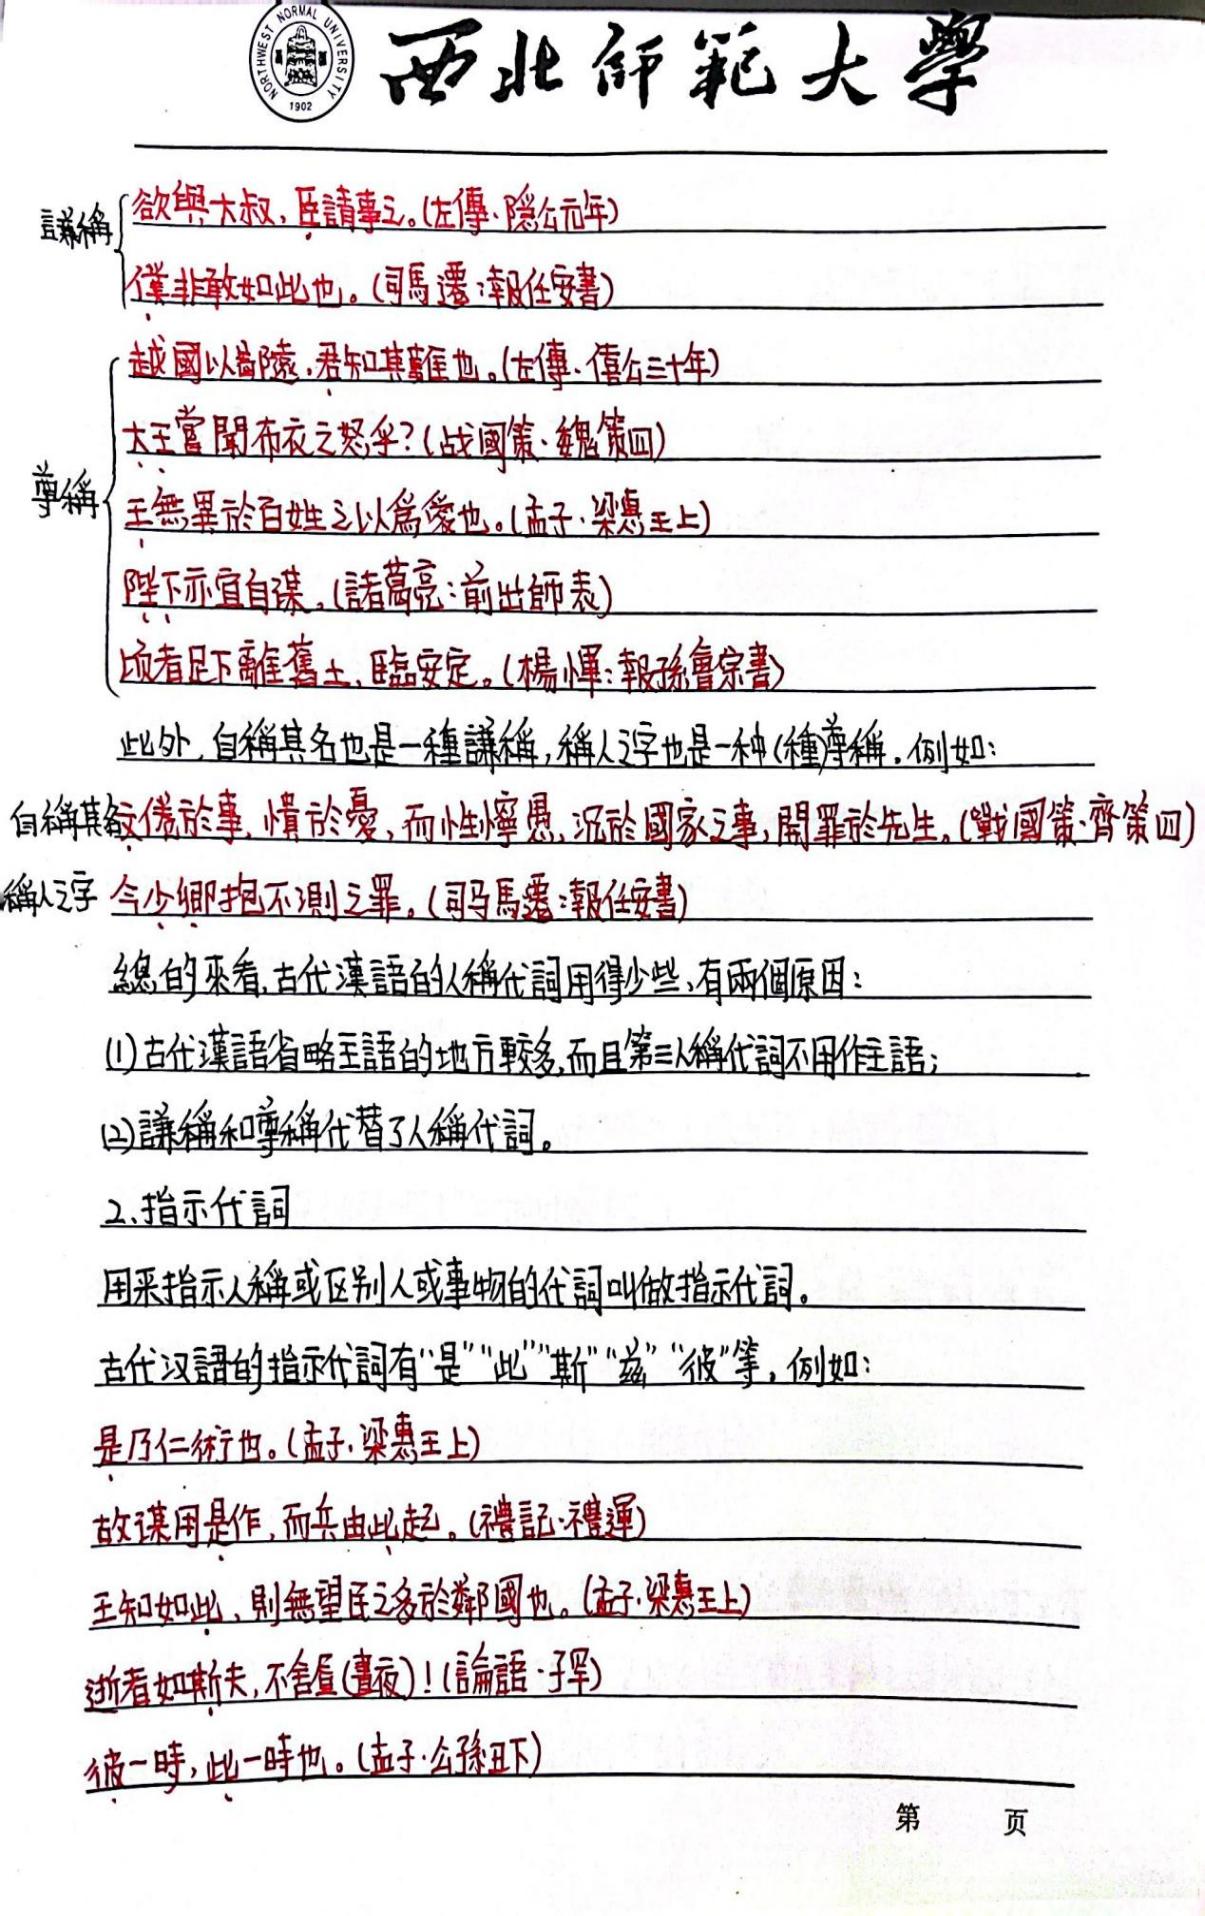 NORTHWEST NORMAL UNIVERSITY
1902
西北師範大學
謙稱
欲與大叔，臣請事之。(左傳·隱公元年)
僕非敢如此也。(司馬遷：報任安書)
尊稱
越國以鄙遠，君知其難也。(左傳·僖公三十年)
大王嘗聞布衣之怒乎？(战國策·魏策四)
王無異於百姓之以爲愛也。(孟子·梁惠王上)
陛下亦宜自謀。(諸葛亮：前出師表)
頃者足下離舊土，臨安定。(楊惲：報孫會宗書)
此外，自稱其名也是一種謙稱，稱人之字也是一种(種)尊稱。例如：
自稱其名 文倦於事，憒於憂，而性懧愚，沉於國家之事，開罪於先生。(戰國策·齊策四)
稱人之字 今少卿抱不測之罪。(司马馬遷：報任安書)
總的來看，古代漢語的人稱代詞用得少些，有兩個原因：
(1)古代漢語省略主語的地方較多，而且第三人稱代詞不用作主語；
(2)謙稱和尊稱代替了人稱代詞。
2、指示代詞
用来指示人稱或区别人或事物的代詞叫做指示代詞。
古代汉語的指示代詞有“是”“此”“斯”“兹”“彼”等，例如：
是乃仁術也。(孟子·梁惠王上)
故謀用是作，而兵由此起。(禮記·禮運)
王知如此，則無望民之多於鄰國也。(孟子·梁惠王上)
逝者如斯夫，不舍昼(晝夜)！(論語·子罕)
彼一時，此一時也。(孟子·公孫丑下)
第 页